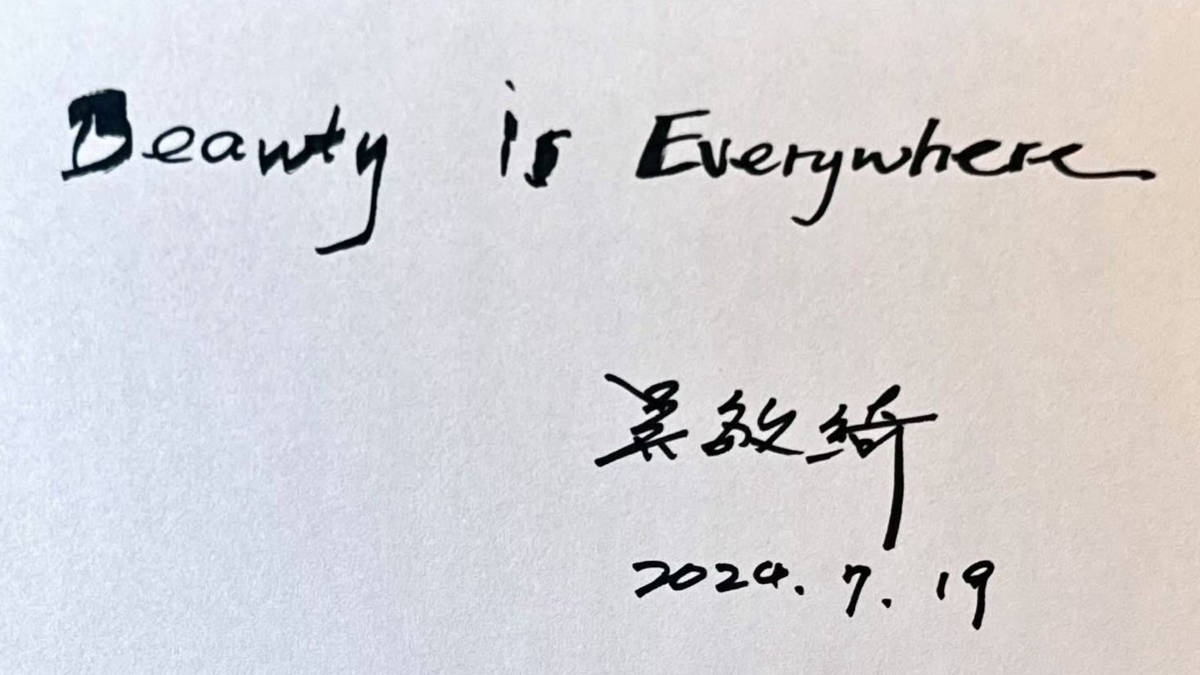 Beauty is Everywhere
吴敏綺
2024.7.19